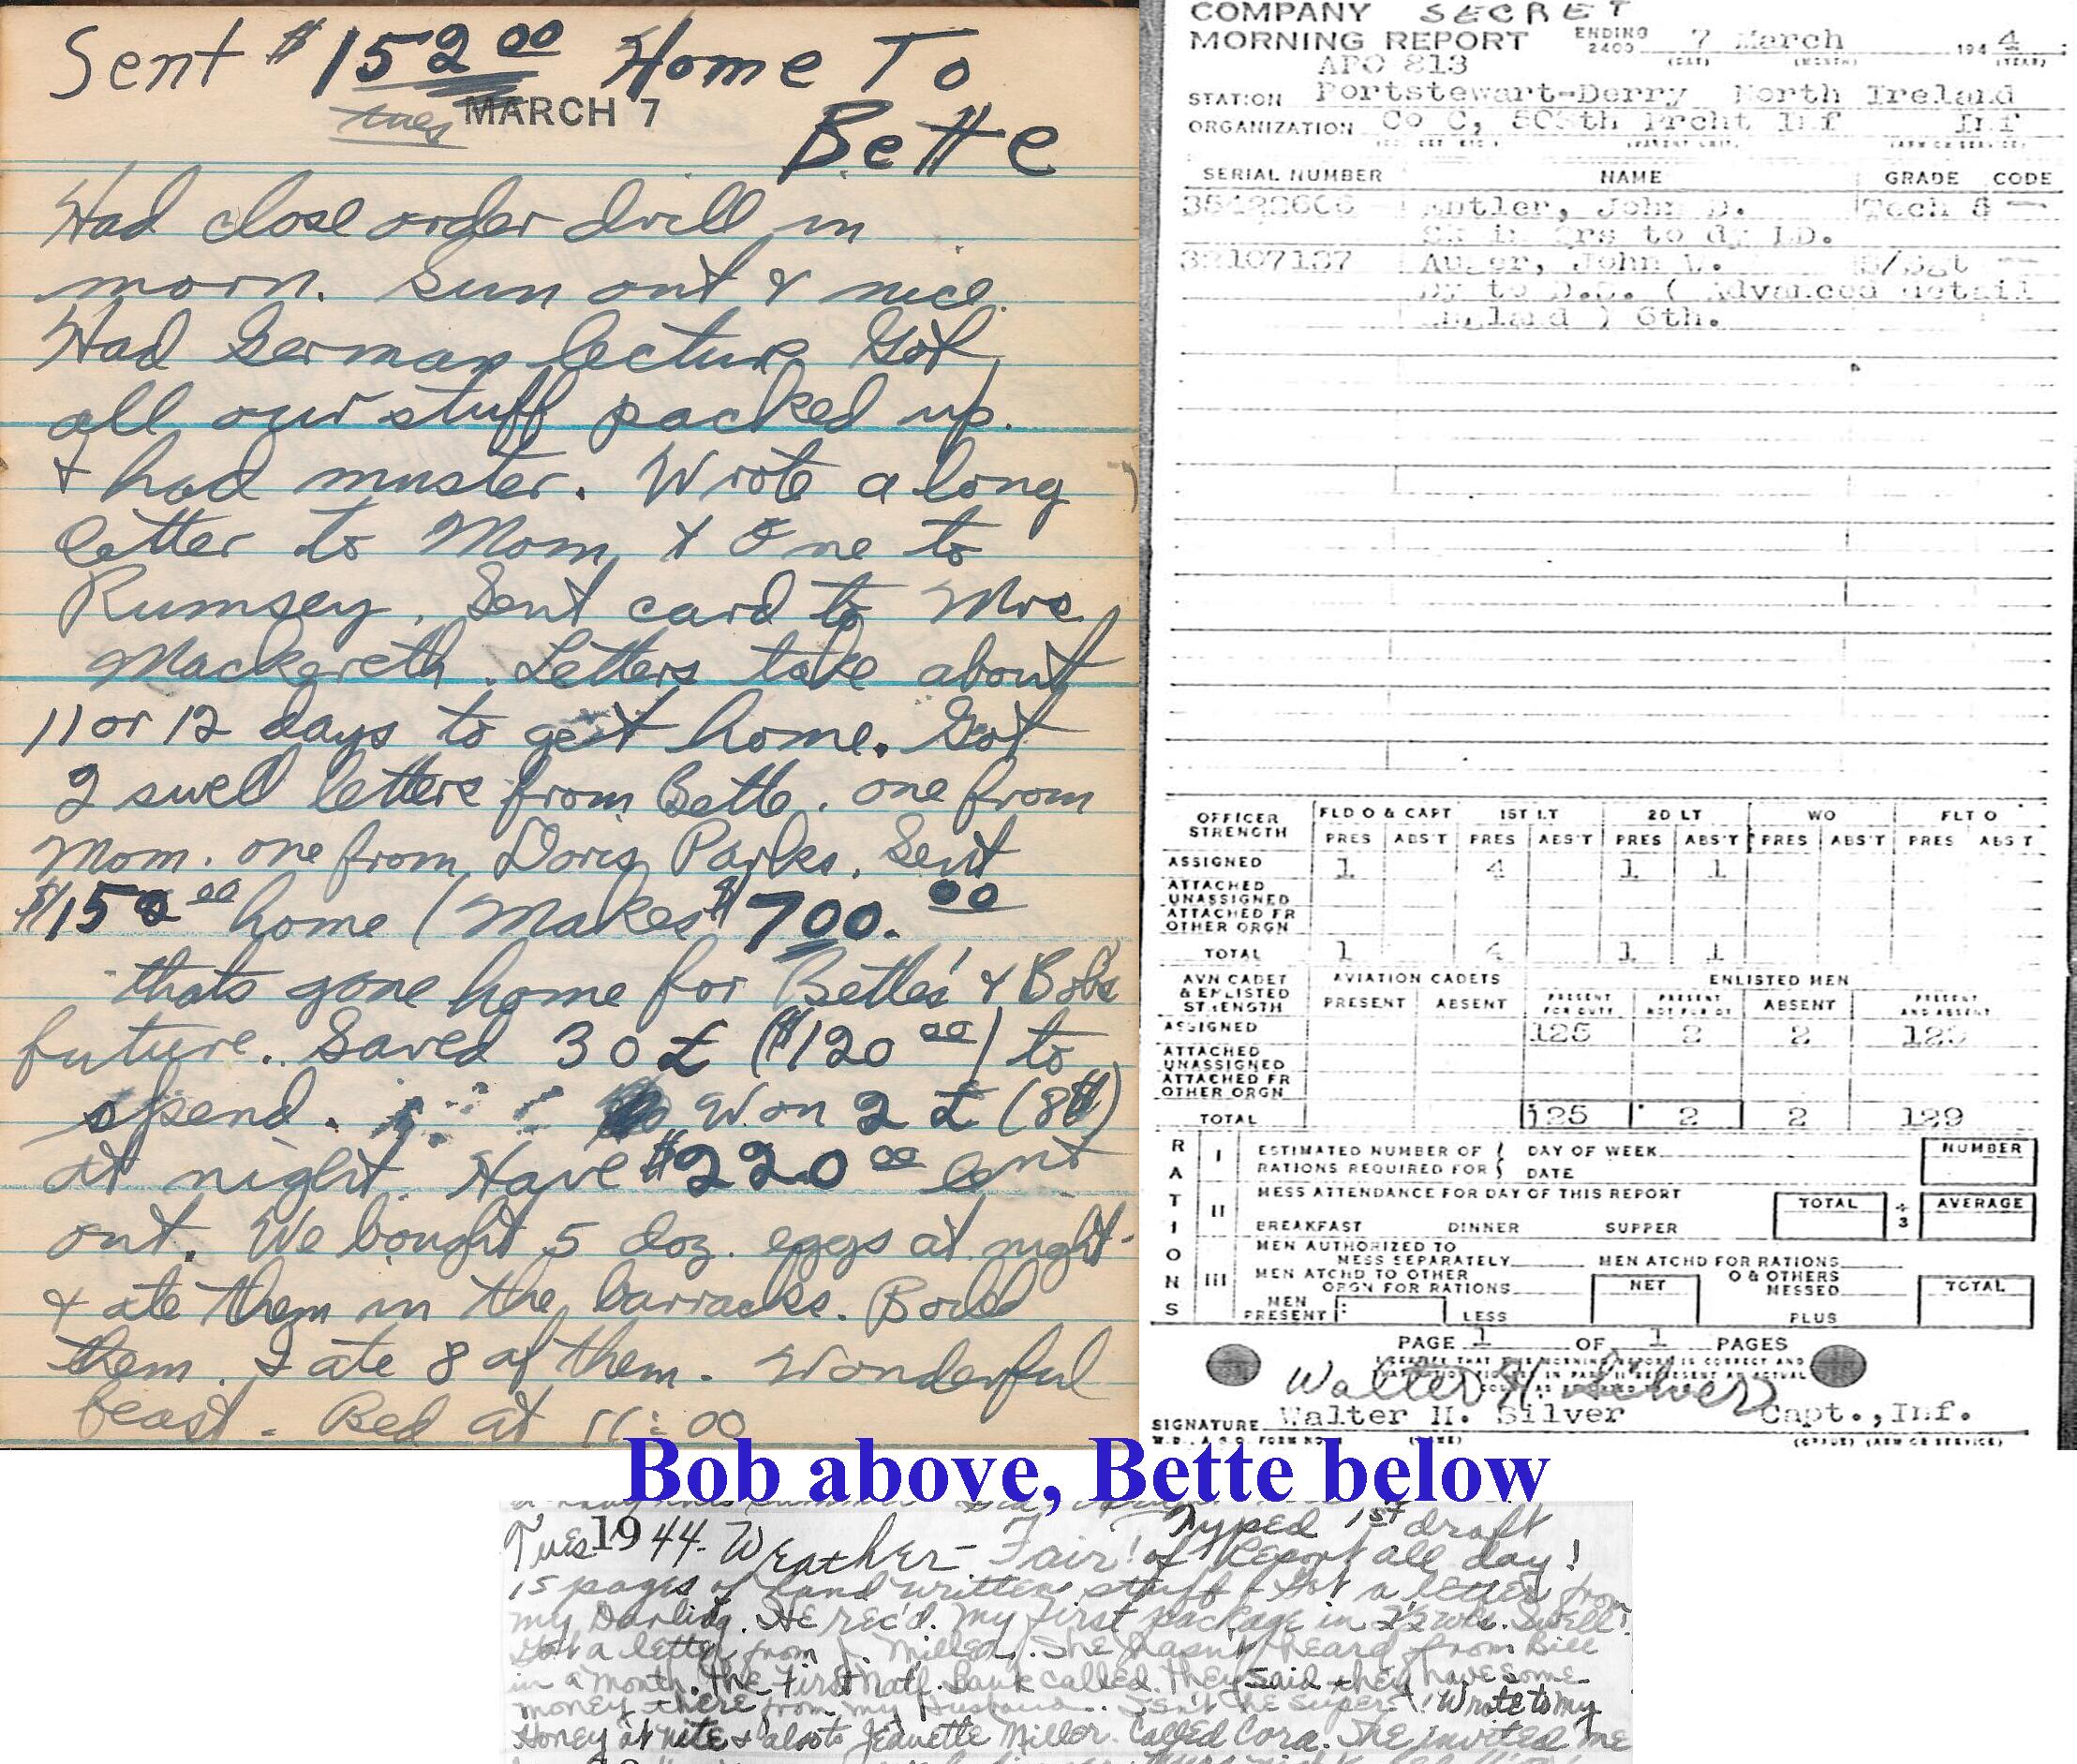 Sent $152.00 Home To
Tues MARCH 7
Bette
Had close order drill in
morn. Sun out & nice.
Had German lecture. Got
all our stuff packed up.
& had muster. Wrote a long
letter to Mom & one to
Rumsey. Sent card to Mrs
Mackereth. Letters take about
11 or 12 days to get home. Got
2 swell letters from Bette. one from
Mom. one from Doris Parks. Sent
$152.00 home (Makes $700.00
thats gone home for Bette's & Bob's
future. Saved 30 £ ($120.00) to
spend. Won 2 £ (8$)
at night. Have $220.00 lent
out. We bought 5 doz. eggs at night
& ate them in the barracks. Boiled
them. I ate 8 of them. Wonderful
feast. Bed at 11:00
COMPANY SECRET
MORNING REPORT ENDING 2400 7 March 1944
(DAY) (MONTH) (YEAR)
APO 813
STATION Portstewart-Derry North Ireland
ORGANIZATION Co C, 508th Prcht Inf Inf
SERIAL NUMBER NAME GRADE CODE
John D. Tech 5
Sk in Qrs to dy LD.
Auger, John V. S/Sgt
Dy to D.S. ( Advanced detail
England ) 6th.
OFFICER STRENGTH FLD O & CAPT 1ST LT 2D LT WO FLT O
PRES ABS'T PRES ABS'T PRES ABS'T PRES ABS'T PRES ABS'T
ASSIGNED 1 4 1 1
ATTACHED UNASSIGNED
ATTACHED FR OTHER ORGN
TOTAL 1 4 1 1
AVN CADET & ENLISTED STRENGTH AVIATION CADETS ENLISTED MEN
PRESENT ABSENT PRESENT FOR DUTY PRESENT NOT FOR DY ABSENT PRESENT AND ABSENT
ASSIGNED 125 2 2 129
ATTACHED UNASSIGNED
ATTACHED FR OTHER ORGN
TOTAL 125 2 2 129
RATIONS
I ESTIMATED NUMBER OF RATIONS REQUIRED FOR DAY OF WEEK DATE NUMBER
II MESS ATTENDANCE FOR DAY OF THIS REPORT TOTAL ÷ 3 AVERAGE
BREAKFAST DINNER SUPPER
III MEN AUTHORIZED TO MESS SEPARATELY MEN ATCHD FOR RATIONS
MEN ATCHD TO OTHER ORGN FOR RATIONS NET O & OTHERS MESSED TOTAL
MEN PRESENT LESS PLUS
PAGE 1 OF 1 PAGES
I CERTIFY THAT THIS MORNING REPORT IS CORRECT AND
Walter H Silver
SIGNATURE Walter H. Silver Capt., Inf.
W.D., A.G.O. FORM NO. (NAME) (GRADE) (ARM OR SERVICE)
Bob above, Bette below
Tues 1944. Weather - Fair! Typed 1st draft
of Report all day!
15 pages of hand written stuff. Got a letter from
my Darling. He rec'd. my first package in 3½ wks. Swell!
Got a letter from J. Miller. She hasn't heard from Bill
in a month. The First Natl. Bank called. They said they have some
money there from my Husband. Isn't he super! Wrote to my
Honey at nite & also to Jeanette Miller. Called Cora. She invited me